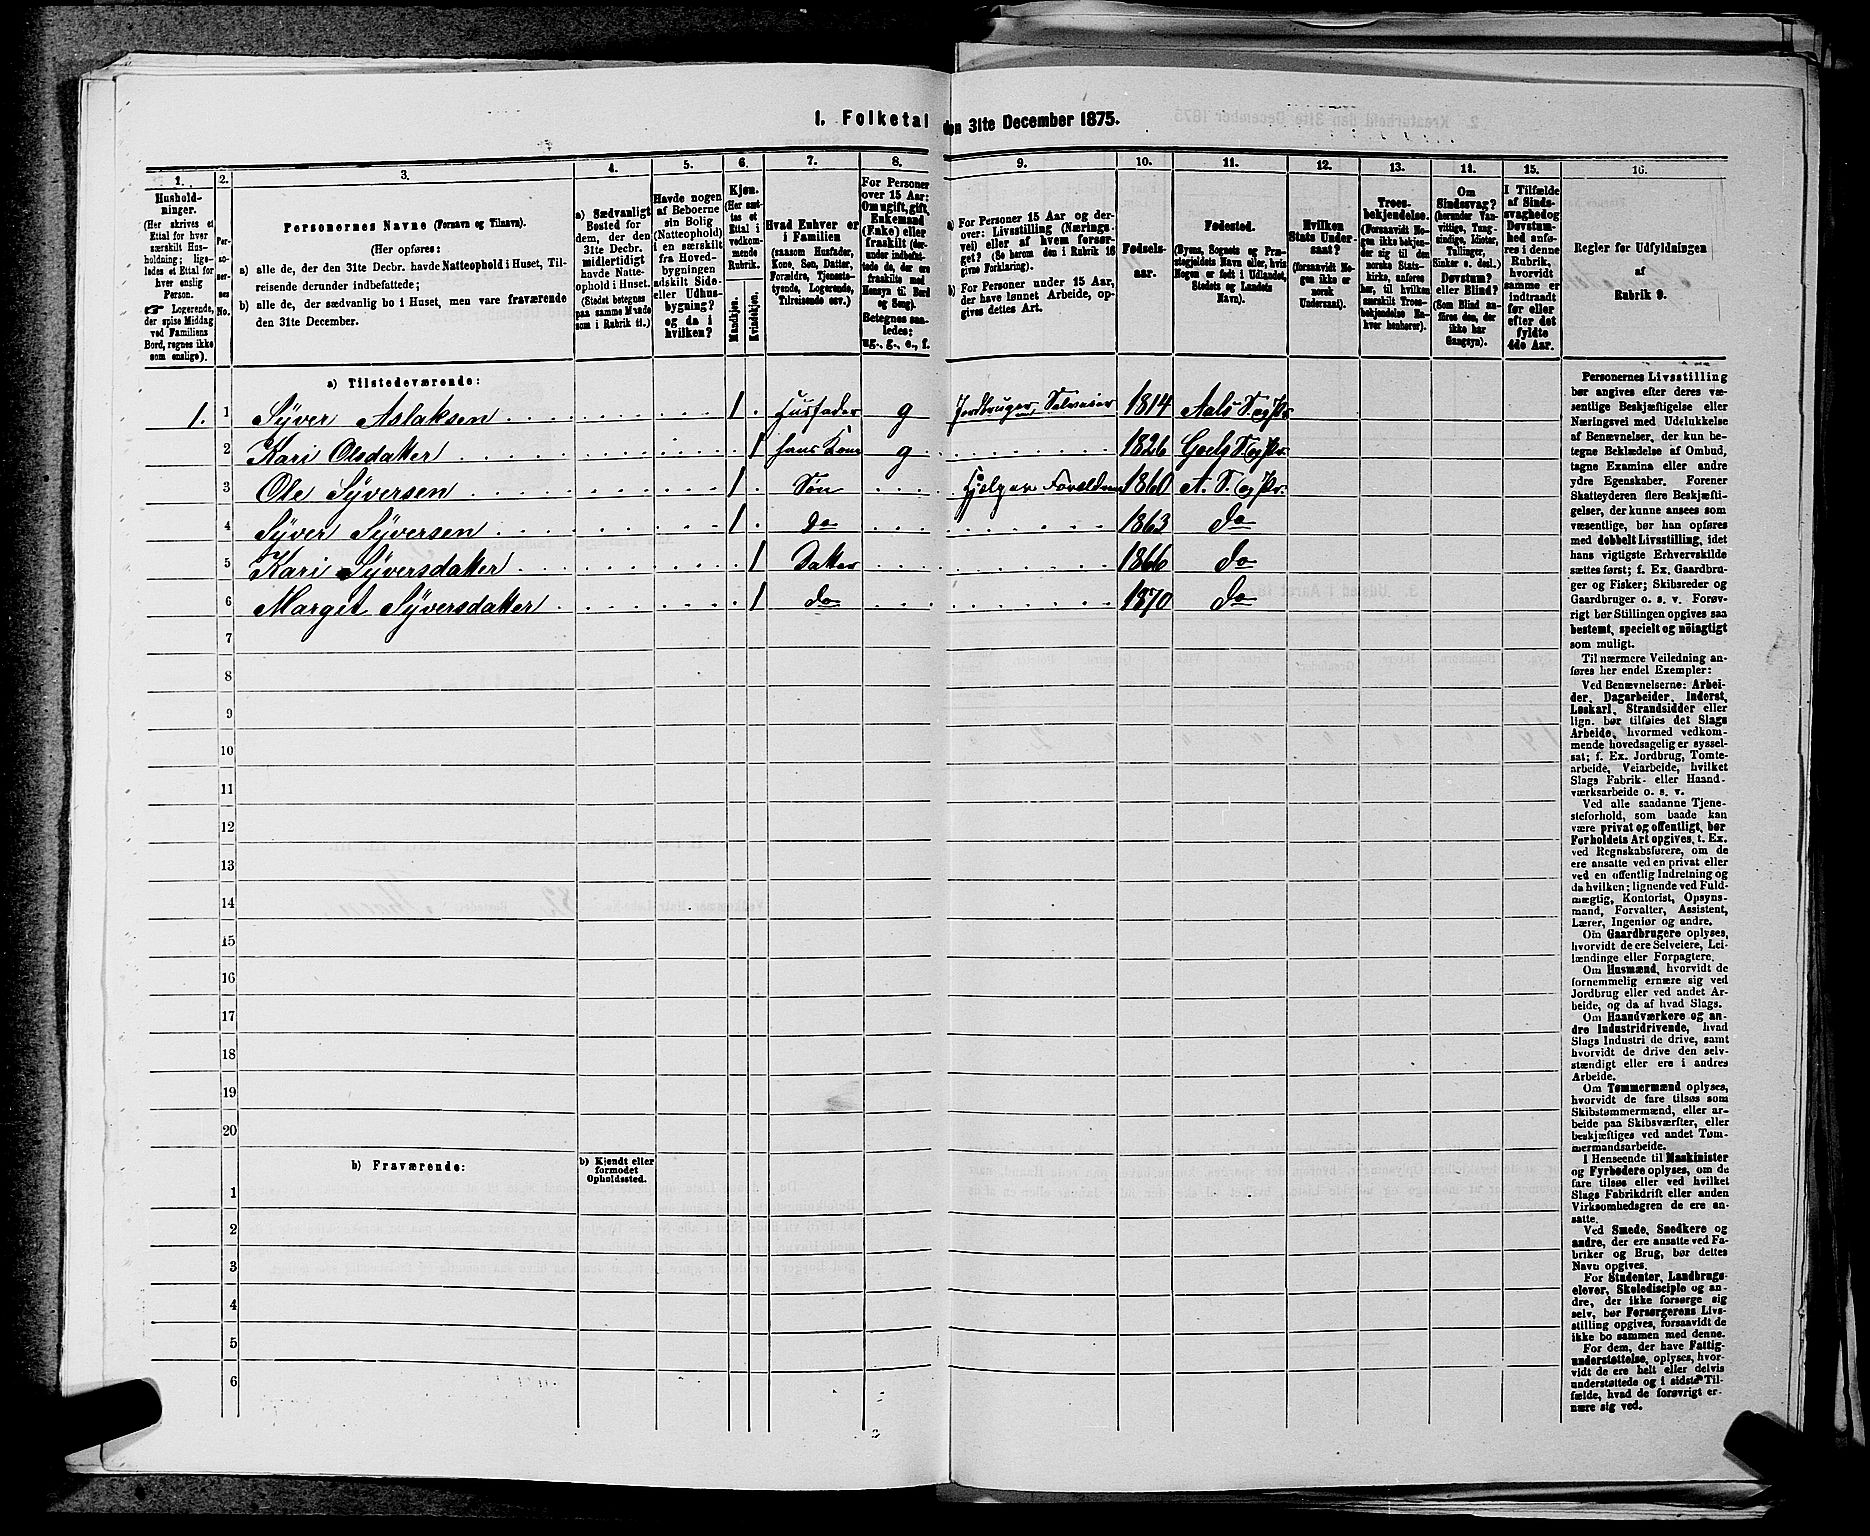 1. Folketal den 31te December 1875.
1.
2.
3.
4.
5.
6.
7.
8.
9.
10.
11.
12.
13.
14.
15.
16.
Hushold-
ninger.
(Her skrives et
Ettal for hver
særskilt Hus-
holdning; lige-
ledes et Ettal for
hver enslig
Person.
☞ Logerende,
der spise Middag
ved Familiens
Bord, regnes ikke
som enslige).
Per-
so-
ner-
nes
No.
Personernes Navne (Fornavn og Tilnavn).
(Her opføres:
a) alle de, der den 31te Decbr. havde Natteophold i Huset, Til-
reisende derunder indbefattede;
b) alle de, der sædvanlig bo i Huset, men vare fraværende
den 31te December.
a) Sædvanligt
Bosted for
dem, der den
31te Decbr.
midlertidigt
havde Natte-
ophold i Huset.
(Stedet betegnes
paa samme Maade
som i Rubrik 11.)
Havde nogen
af Beboerne
sin Bolig
(Natteophold)
i en særskilt
fra Hoved-
bygningen
adskilt Side-
eller Udhus-
bygning?
og da i
hvilken?
Kjøn.
(Her sæt-
tes et
Ettal i
vedkom-
mende
Rubrik.
Mandkjøn.
Kvindekjøn.
Hvad Enhver er
i Familien
(saasom Husfader,
Kone, Søn, Datter,
Forældre, Tjeneste-
tyende, Logerende,
Tilreisende osv.)
For Personer
over 15 Aar:
Om ugift, gift,
Enkemand
(Enke) eller
fraskilt (der-
under indbefat-
tede de, der ere
fraskilte med
Hensyn til Bord
og Seng).
Betegnes saa-
ledes:
ug., g., e., f.
a) For Personer 15 Aar og der-
over: Livsstilling (Nærings-
vei) eller af hvem forsør-
get? (Se herom den i Rubrik 16
givne Forklaring).
b) For Personer under 15 Aar,
der have lønnet Arbeide, op-
gives dettes Art.
Fødsels-
aar.
Fødested.
(Byens, Sognets og Præ-
stegjeldets Navn eller, hvis
Nogen er født i Udlandet,
Stedets og Landets
Navn).
Hvilken
Stats Under-
saat?
(forsaavidt No-
gen ikke er
norsk
Undersaat).
Troes-
bekjendelse.
(Forsaavidt No-
gen ikke bekjen-
der sig til den
norske Stats-
kirke, anføres
her, til hvilken
særskilt Troes-
bekjendelse En-
hver henhører).
Om
Sindssvag?
(herunder Van-
vittige, Tung-
sindige, Idioter,
Tullinger,
Sinker o. desl.)
Døvstum?
eller Blind?
(Som Blind an-
føres den, der
ikke har
Gangsyn).
I Tilfælde
af Sinds-
svaghed og
Døvstum-
hed anfø-
res i denne
Rubrik,
hvorvidt
samme er
indtraadt
før eller
efter det
fyldte
4de Aar.
Regler for Udfyldningen
af
Rubrik 9.
a) Tilstedeværende:
1. 1 Syver Aslaksen 1 Husfader g Jordbruger, Selveier 1814 Aals S. og Pr.
2 Kari Olsdatter 1 hans Kone g 1826 Goels S. og Pr.
3 Ole Syversen 1 Søn Hjelper Forældrene 1860 A. S. og Pr.
4 Syver Syversen 1 do 1863 do
5 Kari Syversdatter 1 Datter 1866 do
6 Margit Syversdatter 1 do 1870 do
7
8
9
10
11
12
13
14
15
16
17
18
19
20
b) Fraværende:
b) Kjendt eller
formodet
Opholdssted.
1
2
3
4
5
6
Personernes Livsstilling
bør angives efter deres væ-
sentlige Beskjæftigelse eller
Næringsvei med Udelukkelse
af Benævnelser, der kun be-
tegne Beklædelse af Ombud,
tagne Examina eller andre
ydre Egenskaber. Forener
Skatteyderen flere Beskjæfti-
gelser, der kunne ansees som
væsentlige, bør han opføres
med dobbelt Livsstilling, idet
hans vigtigste Erhvervskilde
sættes først; f. Ex. Gaardbru-
ger og Fisker; Skibsreder og
Gaardbruger o. s. v. Forøv-
rigt bør Stillingen opgives saa
bestemt, specielt og nøiagtigt
som muligt.
Til nærmere Veiledning an-
føres her endel Exempler:
Ved Benævnelserne: Arbei-
der, Dagarbeider, Inderst,
Løskarl, Strandsidder eller
lign. bør tilføies det Slags
Arbeide, hvormed vedkom-
mende hovedsagelig er syssel-
sat; f. Ex. Jordbrug, Tomte-
arbeide, Veiarbeide, hvilket
Slags Fabrik- eller Haand-
værksarbeide o. s. v.
Ved alle saadanne Tjene-
steforhold, som baade kan
være privat og offentligt, bør
Forholdets Art opgives, t. Ex.
ved Regnskabsførere, om de
ere ansatte ved en privat eller
ved en offentlig Indretning og
da hvilken; lignende ved Fuld-
mægtig, Kontorist, Opsyns-
mand, Forvalter, Assistent,
Lærer, Ingeniør og andre.
Om Gaardbrugere oplyses,
hvorvidt de ere Selveiere, Lei-
lændinge eller Forpagtere.
Om Husmænd, hvorvidt de
fornemmelig ernære sig ved
Jordbrug eller ved andet Ar-
beide, og da af hvad Slags.
Om Haandværkere og an-
dre Industridrivende, hvad
Slags Industri de drive, samt
hvorvidt de drive den selv-
stændigt eller ere i andres
Arbeide.
Om Tømmermænd oplyses,
hvorvidt de fare tilsøs som
Skibstømmermænd, eller ar-
beide paa Skibsværfter, eller
beskjæftiges ved andet Tøm-
mermandsarbeide.
I Henseende til Maskinister
og Fyrbødere oplyses, om de
fare tilsøs eller ved hvilket
Slags Fabrikdrift eller anden
Virksomhedsgren de ere an-
satte.
Ved Smede, Snedkere og
andre, der ere ansatte ved Fa-
briker og Brug, bør dettes
Navn opgives.
For Studenter, Landbrugs-
elever, Skoledisciple og an-
dre, der ikke forsørge sig
selv, bør Forsørgerens Livs-
stilling opgives, forsaavidt de
ikke bo sammen med denne.
For dem, der have Fattig-
understøttelse, oplyses, hvor-
vidt de ere helt eller delvis
understøttede og i sidste Til-
fælde, hvad de forøvrigt er-
nære sig ved.